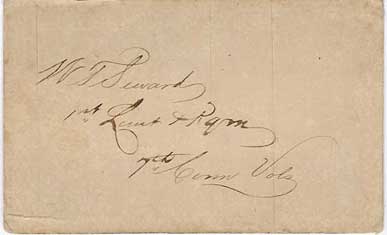 W T Seward
1st Lieut & Rqm
7th Conn Vols